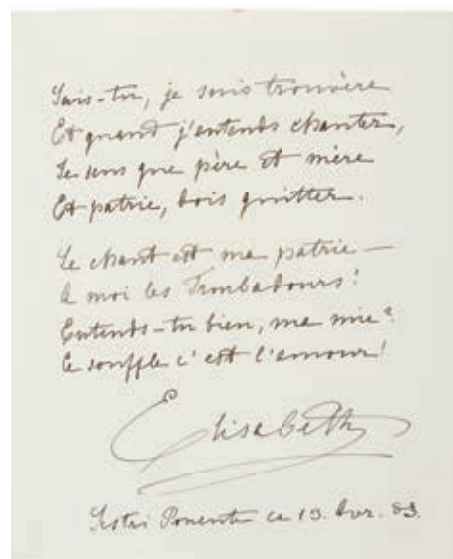 Sais-tu, je suis trouvère
Et quand j'entends chanter,
Je sens que père et mère
Et patrie, dois quitter.
Le chant est ma patrie —
A moi les Troubadours!
Entends-tu bien, ma mie?
Ce souffle c'est l'amour!
Elisabeth
Sestri Ponente ce 13. Avr. 83.